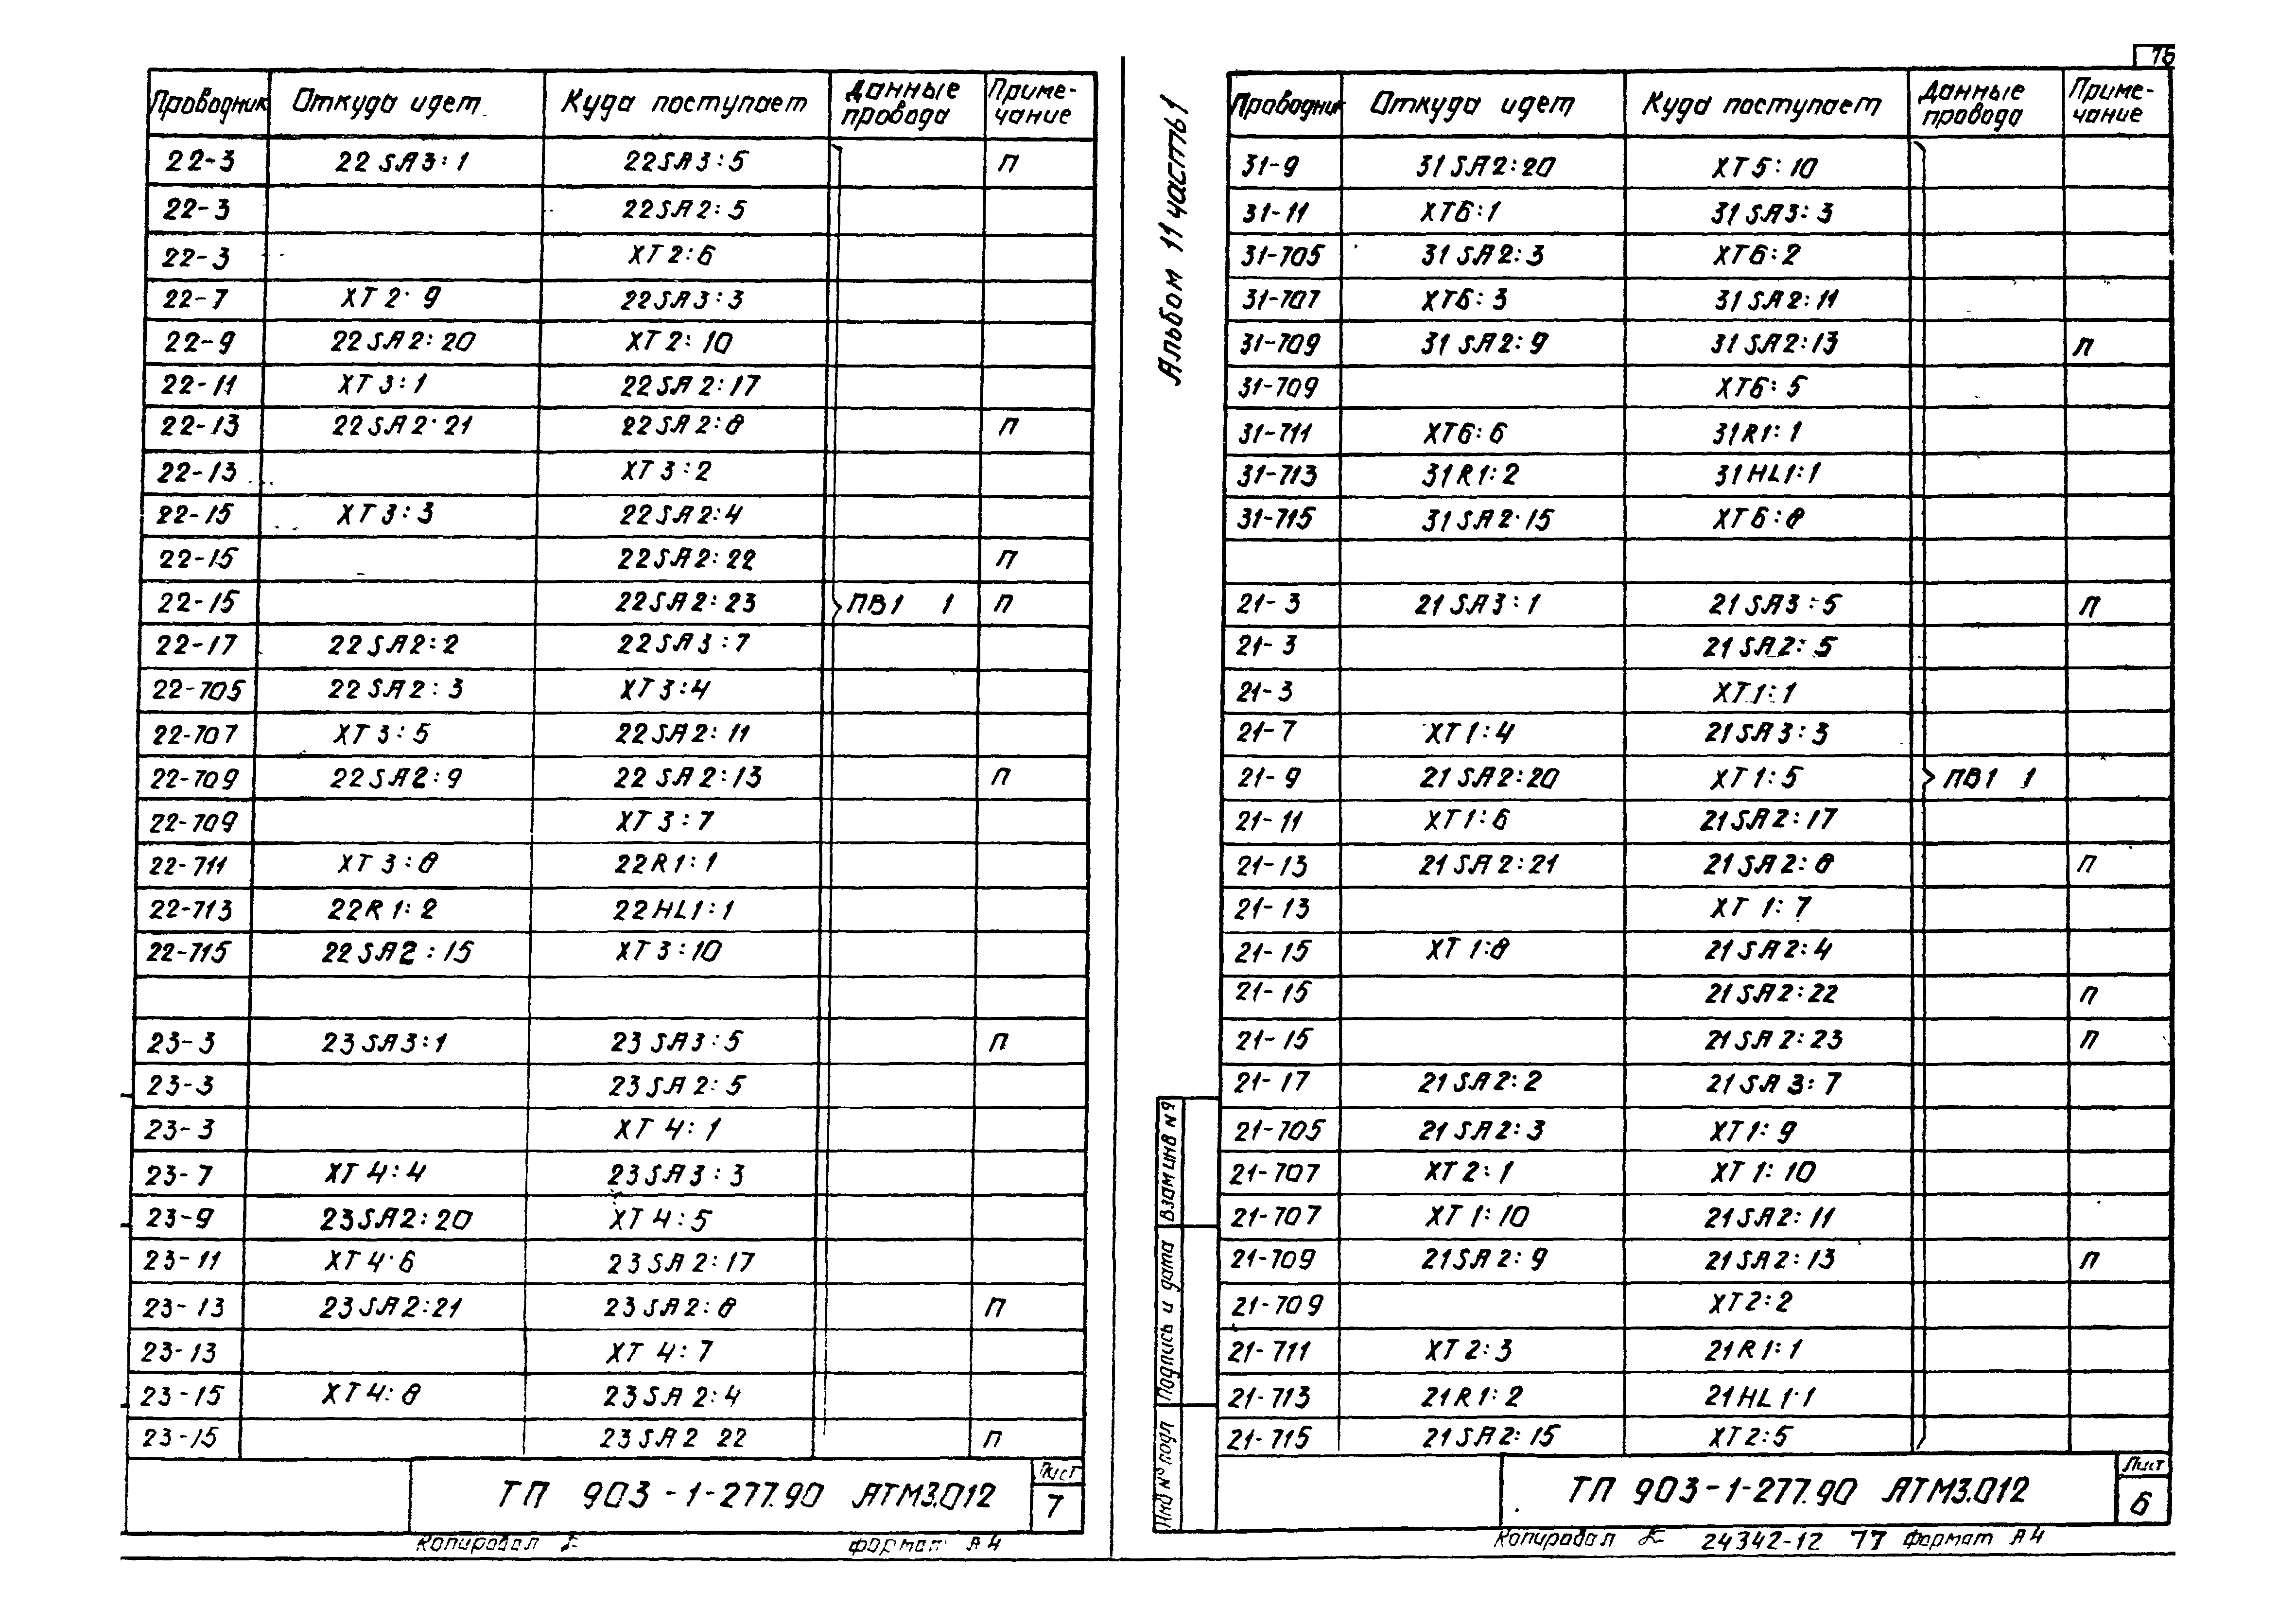 76
Проводник Откуда идет Куда поступает Данные провода Примечание
22-3 22SA3:1 22SA3:5 П
22-3 22SA2:5
22-3 XT2:6
22-7 XT2:9 22SA3:3
22-9 22SA2:20 XT2:10
22-11 XT3:1 22SA2:17
22-13 22SA2:21 22SA2:8 П
22-13 XT3:2
22-15 XT3:3 22SA2:4
22-15 22SA2:22 П
22-15 22SA2:23 ПВ1 1 П
22-17 22SA2:2 22SA3:7
22-705 22SA2:3 XT3:4
22-707 XT3:5 22SA2:11
22-709 22SA2:9 22SA2:13 П
22-709 XT3:7
22-711 XT3:8 22R1:1
22-713 22R1:2 22HL1:1
22-715 22SA2:15 XT3:10
23-3 23SA3:1 23SA3:5 П
23-3 23SA2:5
23-3 XT4:1
23-7 XT4:4 23SA3:3
23-9 23SA2:20 XT4:5
23-11 XT4:6 23SA2:17
23-13 23SA2:21 23SA2:8 П
23-13 XT4:7
23-15 XT4:8 23SA2:4
23-15 23SA2 22 П
ТП 903-1-277.90 АТМ3.012
Лист
7
Копировал
формат А4
Альбом 11 часть 1
Проводник Откуда идет Куда поступает Данные провода Примечание
31-9 31SA2:20 XT5:10
31-11 XT6:1 31SA3:3
31-705 31SA2:3 XT6:2
31-707 XT6:3 31SA2:11
31-709 31SA2:9 31SA2:13 П
31-709 XT6:5
31-711 XT6:6 31R1:1
31-713 31R1:2 31HL1:1
31-715 31SA2:15 XT6:8
21-3 21SA3:1 21SA3:5 П
21-3 21SA2:5
21-3 XT1:1
21-7 XT1:4 21SA3:3
21-9 21SA2:20 XT1:5 ПВ1 1
21-11 XT1:6 21SA2:17
21-13 21SA2:21 21SA2:8 П
21-13 XT1:7
21-15 XT1:8 21SA2:4
21-15 21SA2:22 П
21-15 21SA2:23 П
21-17 21SA2:2 21SA3:7
21-705 21SA2:3 XT1:9
21-707 XT2:1 XT1:10
21-707 XT1:10 21SA2:11
21-709 21SA2:9 21SA2:13 П
21-709 XT2:2
21-711 XT2:3 21R1:1
21-713 21R1:2 21HL1:1
21-715 21SA2:15 XT2:5
Взам инв №
Подпись и дата
Инв № подл
ТП 903-1-277.90 АТМ3.012
Лист
6
Копировал 24342-12 77 Формат А4